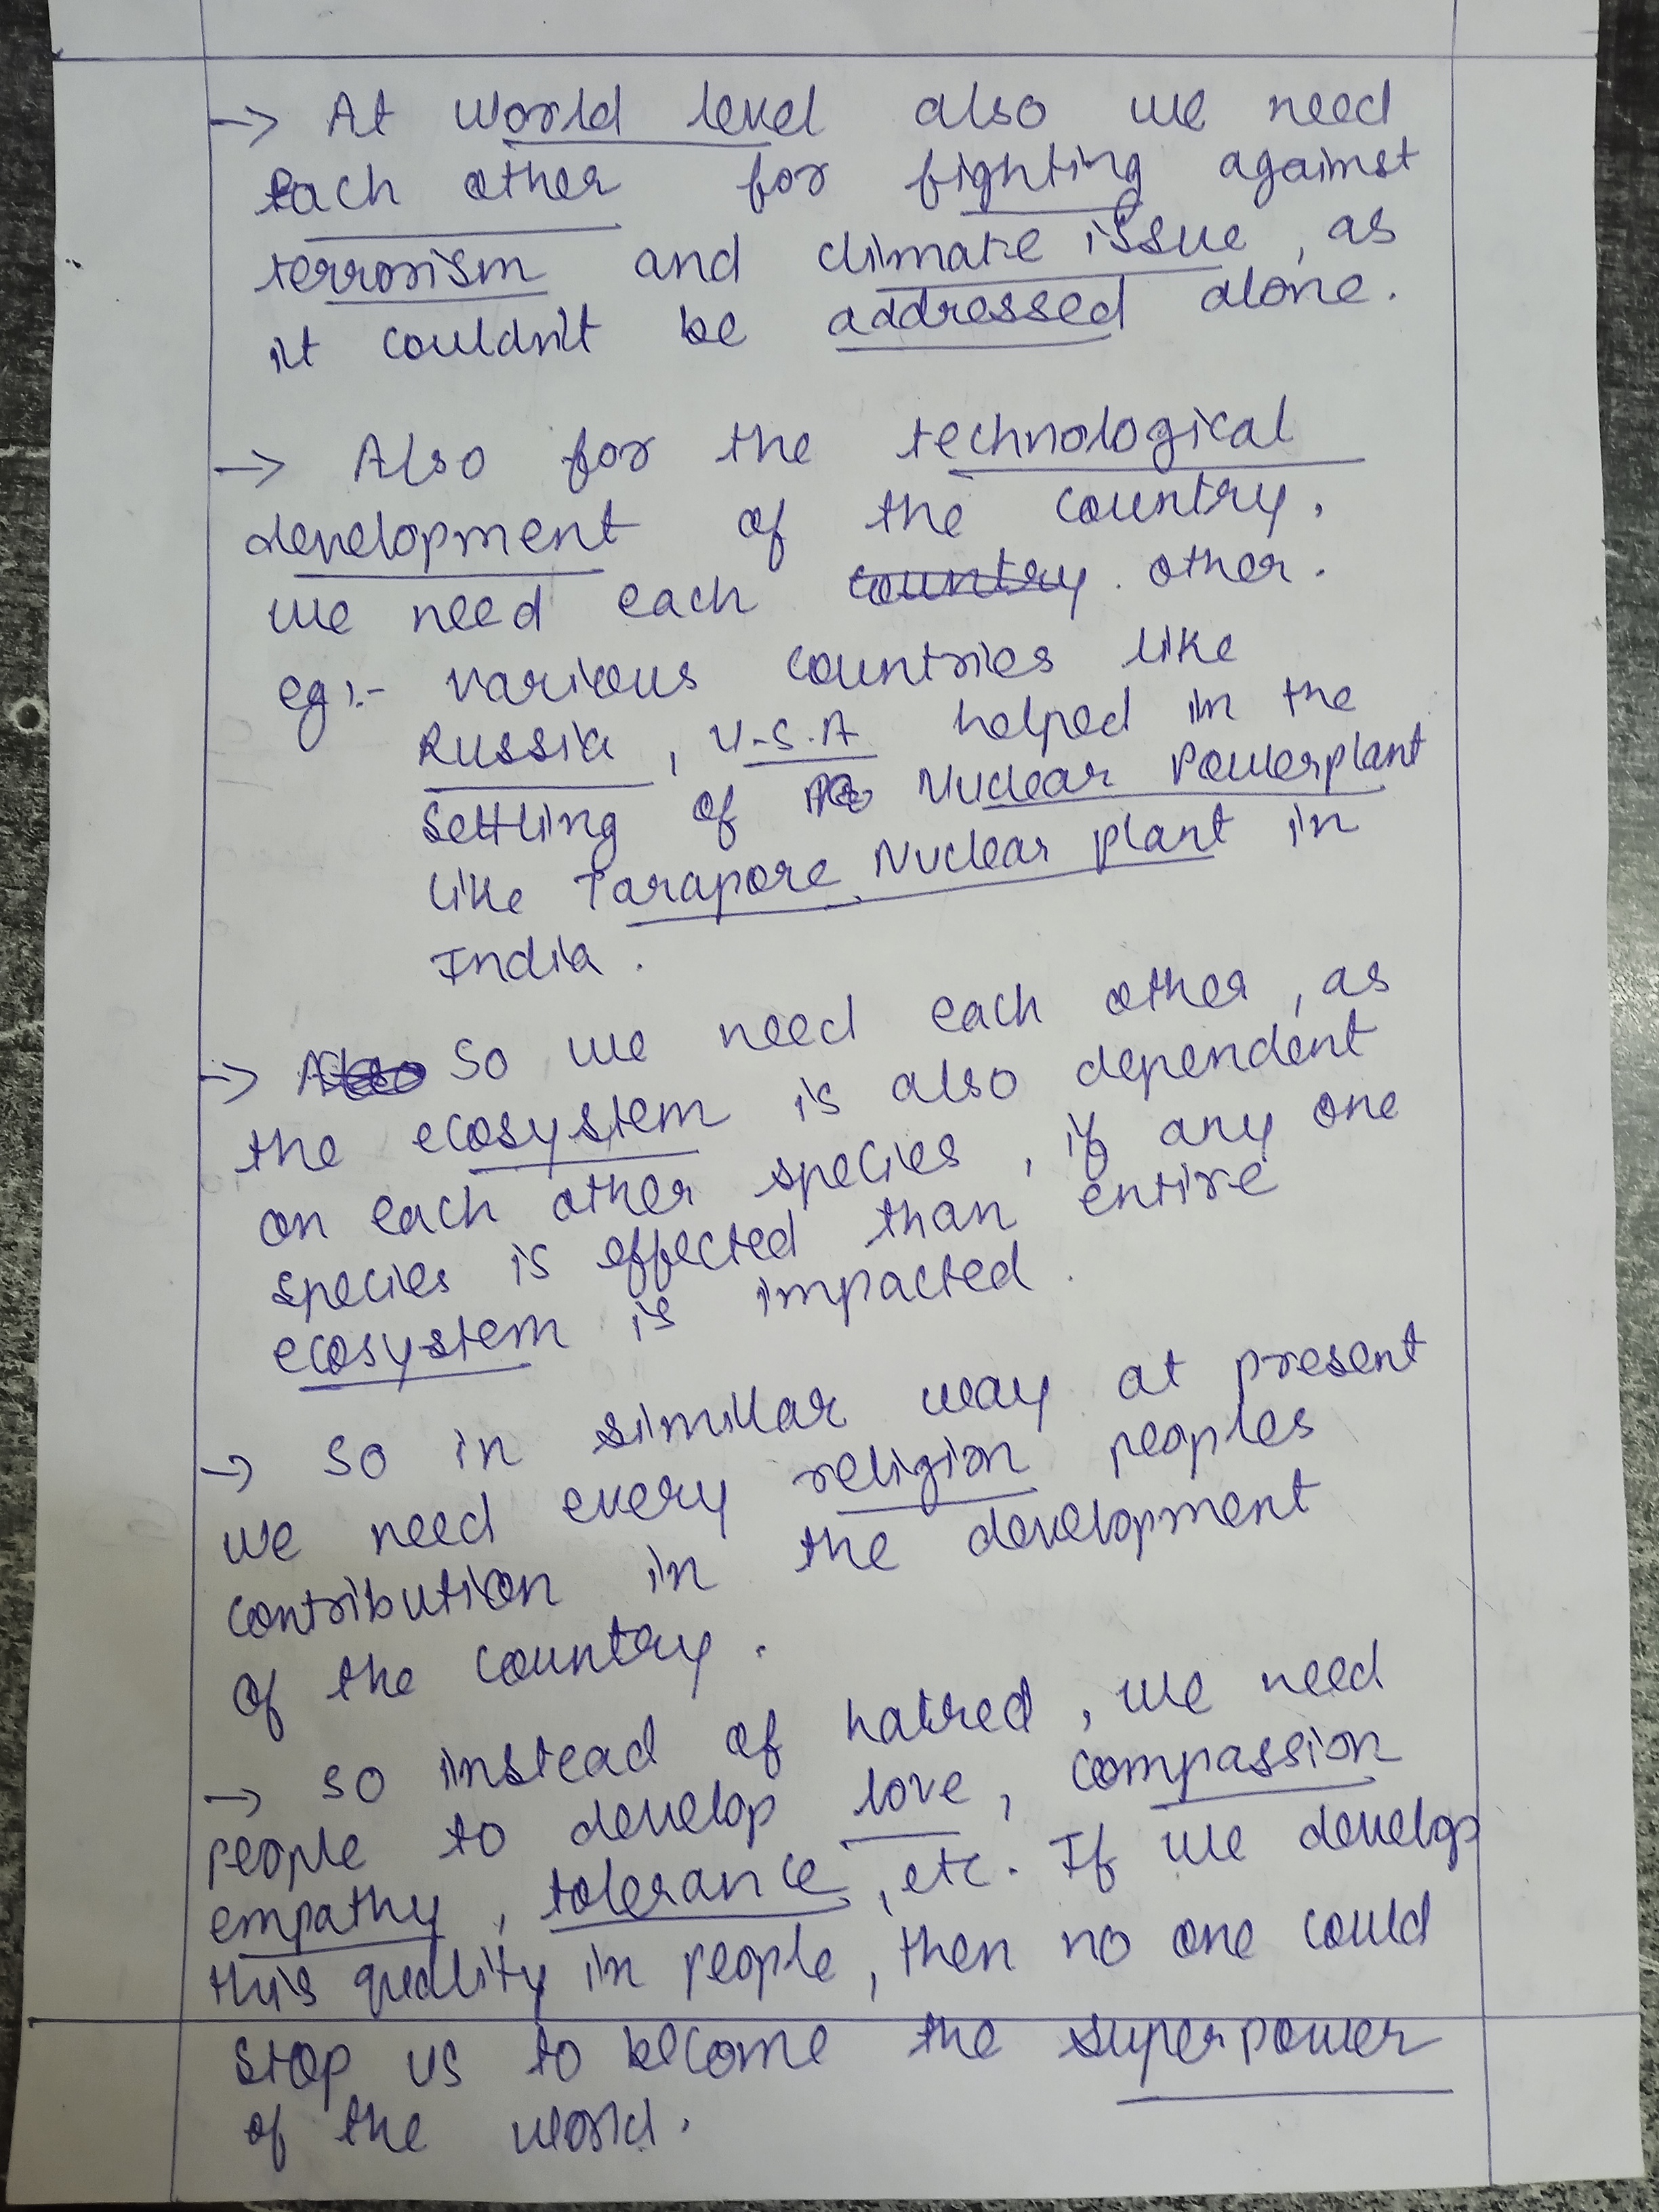 → At world level also we need
each other for fighting against
terrorism and climate issue, as
it couldn't be addressed alone.
→ Also for the technological
development of the country,
we need each country other.
eg:- various countries like
Russia, U.S.A helped in the
settling of Nuclear Powerplant
like Tarapore Nuclear plant in
India.
→ Also So we need each other, as
the ecosystem is also dependent
on each other species, if any one
species is effected than entire
ecosystem is impacted.
→ So in similar way at present
we need every religion peoples
contribution in the development
of the country.
→ So instead of hatred, we need
people to develop love, compassion
empathy, tolerance, etc. If we develop
this quality in people, then no one could
stop us to become the superpower
of the world.